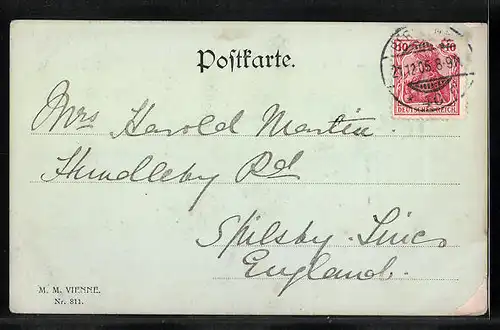 Postkarte.
10 10
21.12.05. 8-9N
DEUTSCHES REICH
Mrs Harold Martin.
Hundleby Rd
Spilsby. Lincs
England.
M. M. VIENNE.
Nr. 311.